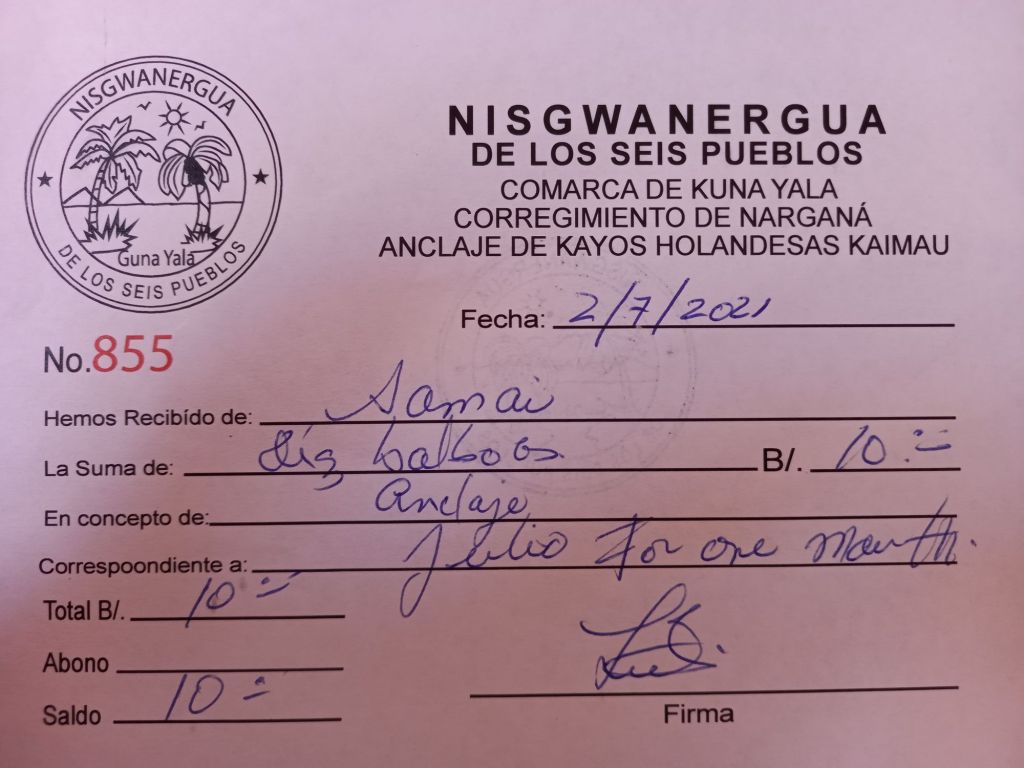 NISGWANERGUA
Guna Yala
DE LOS SEIS PUEBLOS
NISGWANERGUA
DE LOS SEIS PUEBLOS
COMARCA DE KUNA YALA
CORREGIMIENTO DE NARGANÁ
ANCLAJE DE KAYOS HOLANDESAS KAIMAU
Fecha: 2/7/2021
No.855
Hemos Recibído de: Samai
La Suma de: diez balboas. B/. 10.=
En concepto de: Anclaje
Correspoondiente a: Julio For one month.
Total B/. 10=
Abono
Saldo 10=
Firma